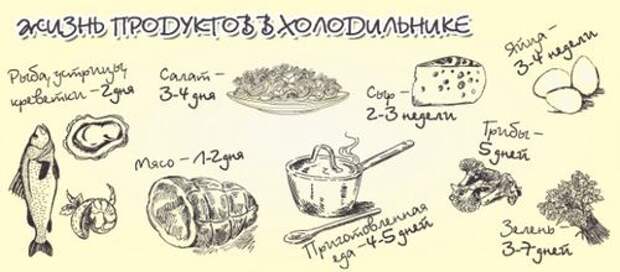 ЖИЗНЬ ПРОДУКТОВ В ХОЛОДИЛЬНИКЕ
Рыба, устрицы,
креветки - 2 дня
Салат -
3-4 дня
Сыр -
2-3 недели
Яйца -
3-4 недели
Мясо - 1-2 дня
Приготовленная
еда - 4-5 дней
Грибы -
5 дней
Зелень -
3-7 дней